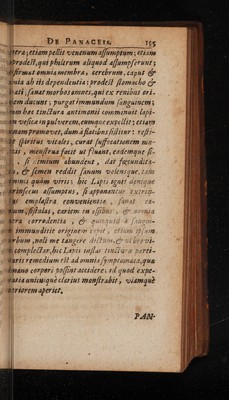 DE PANACEIS. 155
nera; etiam pellit venenum assumptum: etiam
prodest, qui philtrum aliquod assumpserunt;
firmat omnia membra, cerebrum, caput &
nia ab iis dependentia: prodest stomacho &
pati, sanat morbos omnes, qui ex renibus ori-
nem ducunt; purgat immundum sanguinem;
nam hoc tinctura antimonii comminuit lapi-
m vesicæ in pulverem, eumque expellit: etiam
nam promovet, dum à flatibus sistitur: resti-
t spiritus vitales, curat suffocationem
menstrua facit ut fluant, eademque si-
si nimium abundent, dat fæcundita-
& semen reddit sanum velenique, tam
minis quàm viris: hic Lapis agat denique
trinsecus assumptus, si apponatur
emplastra convenientia, sanat
fistulas, cariem in ossibus, & omnia
corrodentia, & quicquid à sangui-
immunditie originem cepit, etiam ipsum
rbum, noli me tangere dictum, &
complectar, hic Lapis instar tincturæ parti-
uris remedium est ad omnia symptomata, quæ
umano corpori possint accidere: id quod expe-
cuique clarius monstrabit, viamque
teriorem aperiet.
PAN-